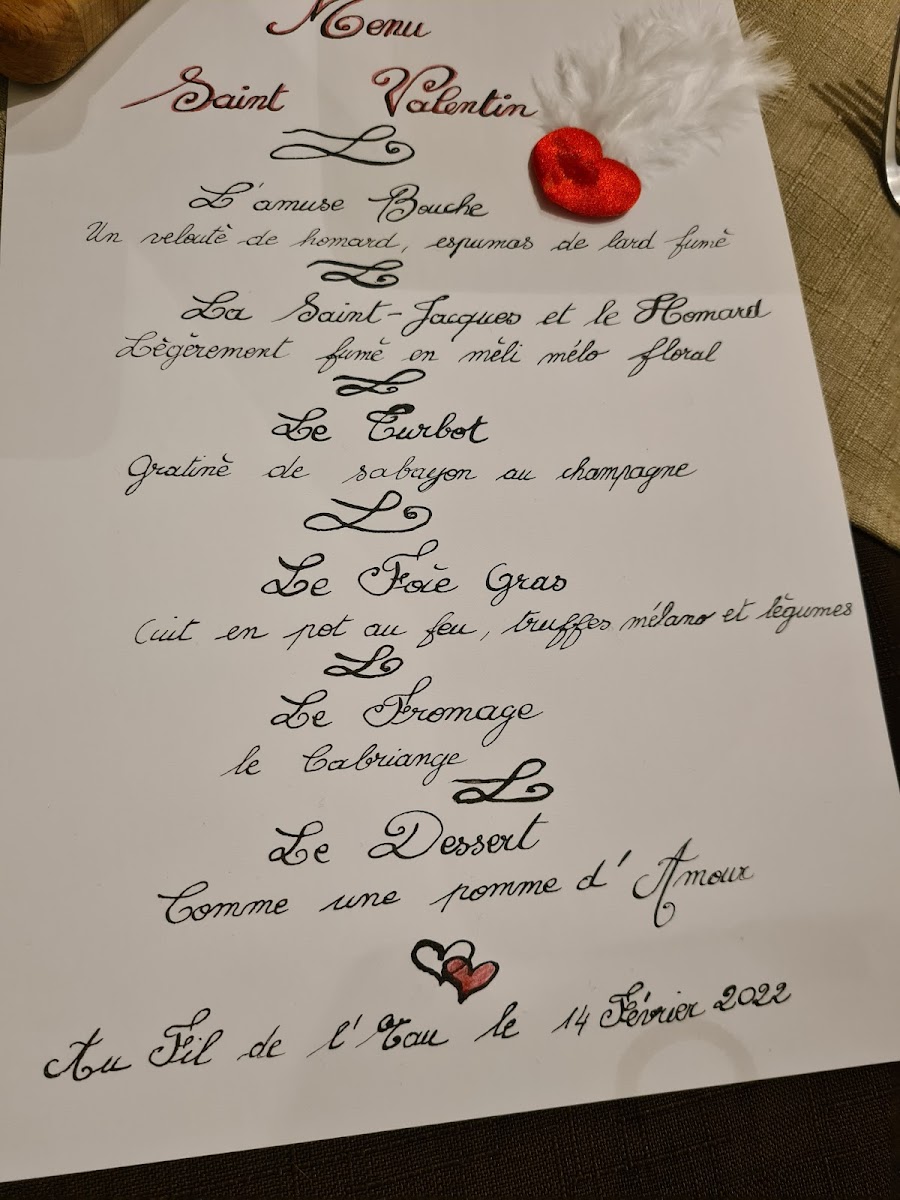 Menu
Saint Valentin
L'amuse Bouche
Un veloutè de homard, espumas de lard fumè
La Saint-Jacques et le Homard
Lègèrement fumè en mèli mélo floral
Le Turbot
Gratinè de sabayon au champagne
Le Foie Gras
Cuit en pot au feu, truffes mélano et lègumes
Le Fromage
le Cabriange
Le Dessert
Comme une pomme d'Amour
Au Fil de l'Eau le 14 Février 2022